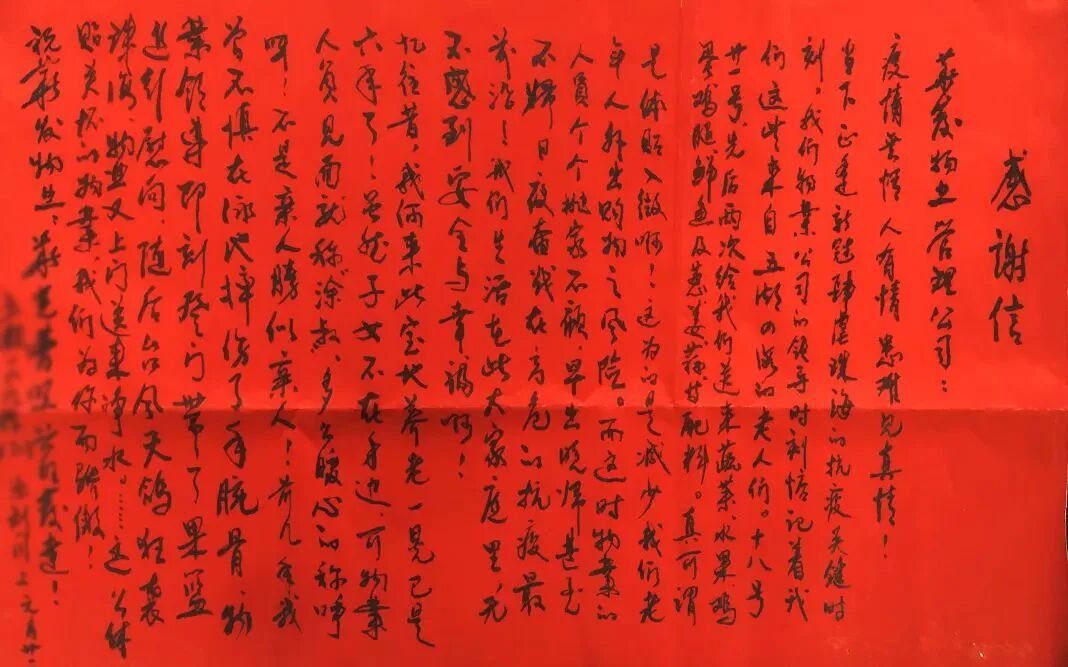 感谢信
华发物业管理公司：
疫情无情人有情患难见真情！
当下正逢新冠肆虐珠海的抗疫关键时
刻，我们物业公司的领导时刻惦记着我
们这些来自五湖四海的老人们。十八号
廿一号，先后两次给我们送来蔬菜、水果、鸡
蛋鸡腿鲜鱼及葱姜蒜等配料。真可谓
是体贴入微啊！这为的是减少我们老
年人外出购物之风险。而这时物业的
人员个个随家不顾早出晚归甚至
不归日夜奋战在高危的抗疫最
前沿！我们生活在此大家庭里，无
不感到安全与幸福啊！
忆往昔，我俩来此宝地养老一晃已是
六年了！虽然子女不在身边可物业
人员见面就称涂叔，多么暖心的称呼
呀！不是亲人胜似亲人！前几年我
曾不慎在泳池摔伤了手腕骨，物
业领导即刻登门带了果篮
进行慰问，随后台风天鸽狂袭
珠海，物业又上门送来净水。……这公体
贴关怀的物业，我们为你而骄傲！
祝华发物业、